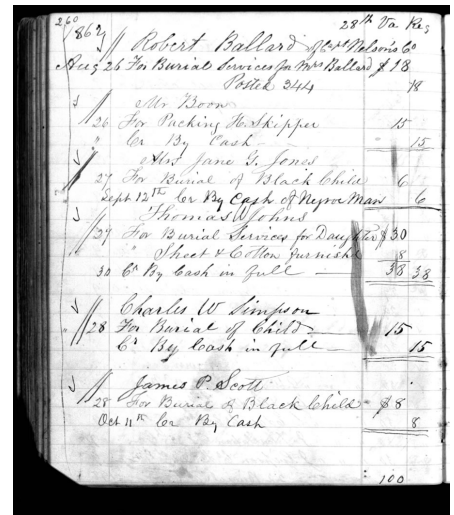 260
1862
28th Va Reg
Robert Ballard of Capt Nelsons Co
Aug 26 For Burial Services for Mrs Ballard $18
Posted 344 18
Mr Boon
26 For Packing H. Skipper 15
" Cr By Cash 15
Mrs Jane G. Jones
27 For Burial of Black Child 6
Sept 12th Cr By Cash of Negroe Man 6
Thomas W Johns
27 For Burial Services for Daughter $30
" Sheet & Cotton furnished 8
30 Cr By Cash in full 38 38
Charles W Simpson
28 For Burial of Child 15
Cr By Cash in full 15
James P. Scott
28 For Burial of Black Child $8
Oct 11th Cr By Cash 8
100